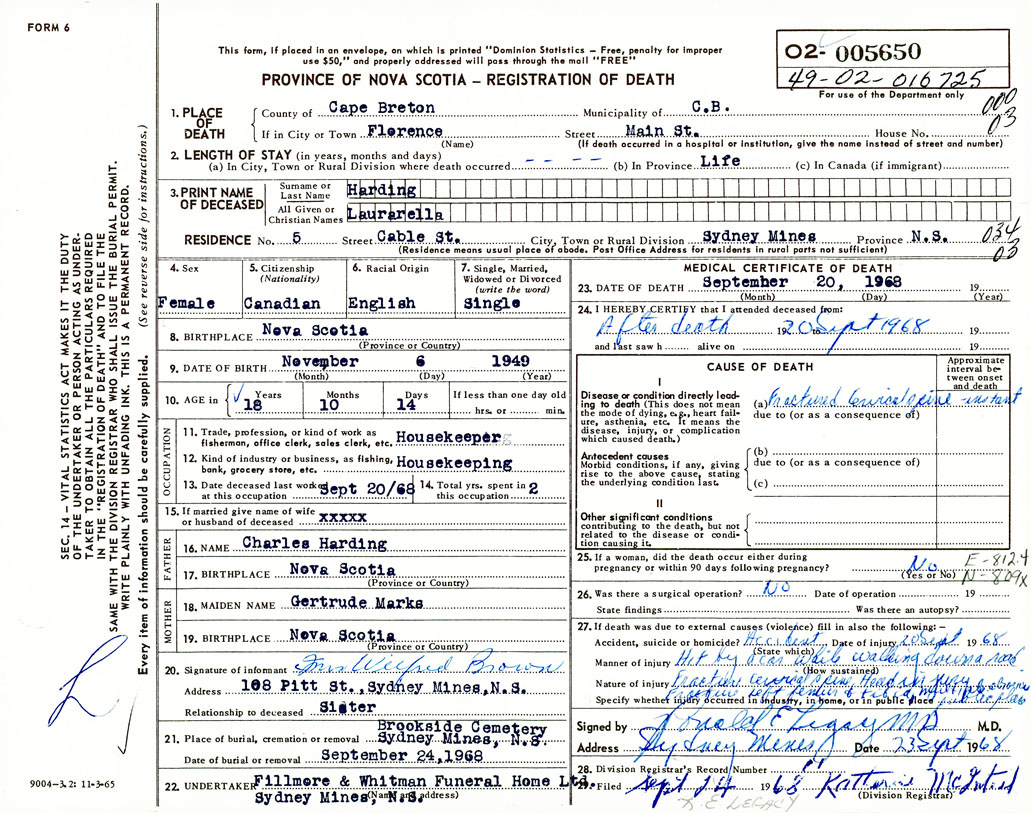 FORM 6
This form, if placed in an envelope, on which is printed "Dominion Statistics – Free, penalty for improper
use $50," and properly addressed will pass through the mail "FREE"
PROVINCE OF NOVA SCOTIA – REGISTRATION OF DEATH
O2- 005650
49-02-016725
For use of the Department only
000
03
1. PLACE OF DEATH
County of Cape Breton Municipality of C.B.
If in City or Town Florence Street Main St. House No.
(Name) (If death occurred in a hospital or institution, give the name instead of street and number)
2. LENGTH OF STAY (in years, months and days)
(a) In City, Town or Rural Division where death occurred -- -- (b) In Province Life (c) In Canada (if immigrant)
3. PRINT NAME OF DECEASED
Surname or Last Name Harding
All Given or Christian Names Laurarella
RESIDENCE No. 5 Street Cable St. City, Town or Rural Division Sydney Mines Province N.S.
(Residence means usual place of abode. Post Office Address for residents in rural parts not sufficient)
034
03
4. Sex
Female
5. Citizenship
(Nationality)
Canadian
6. Racial Origin
English
7. Single, Married,
Widowed or Divorced
(write the word)
Single
8. BIRTHPLACE Nova Scotia
(Province or Country)
9. DATE OF BIRTH November 6 1949
(Month) (Day) (Year)
10. AGE in Years Months Days If less than one day old
18 10 14 hrs. or min.
OCCUPATION
11. Trade, profession, or kind of work as
fisherman, office clerk, sales clerk, etc. Housekeeper
12. Kind of industry or business, as fishing,
bank, grocery store, etc. Housekeeping
13. Date deceased last worked
at this occupation Sept 20/68
14. Total yrs. spent in
this occupation 2
15. If married give name of wife
or husband of deceased xxxxx
FATHER
16. NAME Charles Harding
17. BIRTHPLACE Nova Scotia
(Province or Country)
MOTHER
18. MAIDEN NAME Gertrude Marks
19. BIRTHPLACE Nova Scotia
(Province or Country)
20. Signature of informant Mrs Welfred Brown
Address 108 Pitt St., Sydney Mines,N.S.
Relationship to deceased Sister
21. Place of burial, cremation or removal Brookside Cemetery
Sydney Mines, N.S.
Date of burial or removal September 24,1968
22. UNDERTAKER Fillmore & Whitman Funeral Home Ltd.
(Name and address)
Sydney Mines, N.S.
MEDICAL CERTIFICATE OF DEATH
23. DATE OF DEATH September 20, 1968 19
(Month) (Day) (Year)
24. I HEREBY CERTIFY that I attended deceased from:
After death 19 to 20 Sept 1968 19
and last saw h alive on 19
CAUSE OF DEATH
Approximate
interval be-
tween onset
and death
I
Disease or condition directly lead-
ing to death (This does not mean
the mode of dying, e.g., heart fail-
ure, asthenia, etc. It means the
disease, injury, or complication
which caused death.)
(a) Fractured Cervical spine - instant
due to (or as a consequence of)
Antecedent causes
Morbid conditions, if any, giving
rise to the above cause, stating
the underlying condition last.
(b)
due to (or as a consequence of)
(c)
II
Other significant conditions
contributing to the death, but not
related to the disease or condi-
tion causing it.
25. If a woman, did the death occur either during
pregnancy or within 90 days following pregnancy? No
(Yes or No)
E-812.4
N-809X
26. Was there a surgical operation? No Date of operation 19
State findings Was there an autopsy?
27. If death was due to external causes (violence) fill in also the following: –
Accident, suicide or homicide? Accident Date of injury 20 Sept 1968
(State which)
Manner of injury Hit by a car while walking down a road
(How sustained)
Nature of injury Fracture cervical spine, Head injury
Fracture left femur & tibia, multiple abrasions
Specify whether injury occurred in industry, in home, or in public place public place
Signed by Donald E Legay MD M.D.
Address Sydney Mines Date 23 Sept 1968
28. Division Registrar's Record Number
29. Filed Sept 24 1968 Katherine
(Division Registrar)
D.E LEGACY
SEC. 14 – VITAL STATISTICS ACT MAKES IT THE DUTY
OF THE UNDERTAKER OR PERSON ACTING AS UNDER-
TAKER TO OBTAIN ALL THE PARTICULARS REQUIRED
IN THE "REGISTRATION OF DEATH" AND TO FILE THE
SAME WITH THE DIVISION REGISTRAR WHO SHALL ISSUE THE BURIAL PERMIT.
WRITE PLAINLY WITH UNFADING INK. THIS IS A PERMANENT RECORD.
Every item of information should be carefully supplied. (See reverse side for instructions.)
9004–3.2: 11-3-65